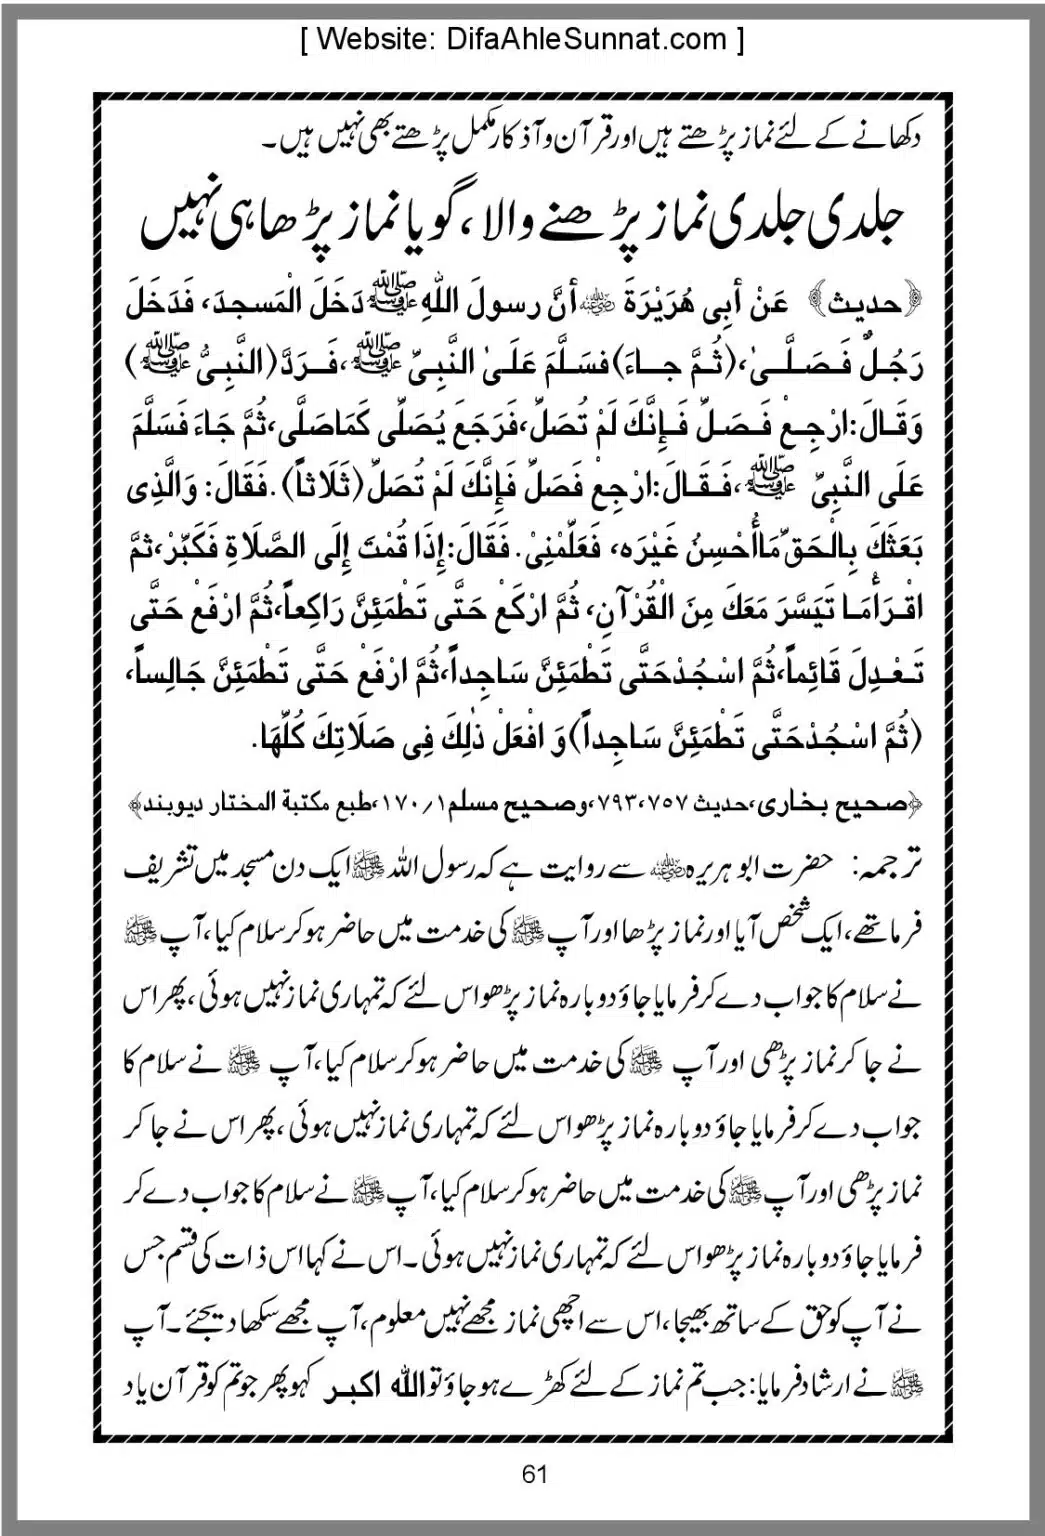 [ Website: DifaAhleSunnat.com ]
دکھانے کے لئے نماز پڑھتے ہیں اور قرآن و آذکار مکمل پڑھتے بھی نہیں ہیں۔
جلدی جلدی نماز پڑھنے والا، گویا نماز پڑھا ہی نہیں
﴿حدیث﴾ عَنْ أبِی هُرَیْرَةَ رضی اللہ عنہ أنَّ رسولَ اللّٰهِ ﷺ دَخَلَ الْمَسجدَ، فَدَخَلَ
رَجُلٌ فَصَلَّیٰ،(ثُمَّ جاءَ)فسَلَّمَ عَلَیٰ النَّبِیِّ ﷺ،فَرَدَّ(النَّبِیُّ ﷺ)
وَقَالَ:ارْجِعْ فَصَلِّ فَإِنَّكَ لَمْ تُصَلِّ،فَرَجَعَ یُصَلِّی كَمَاصَلَّی،ثُمَّ جَاءَ فَسَلَّمَ
عَلَی النَّبِیِّ ﷺ،فَقَالَ:ارْجِعْ فَصَلِّ فَإِنَّكَ لَمْ تُصَلِّ(ثَلَاثاً).فَقَالَ: وَالَّذِی
بَعَثَكَ بِالْحَقِّ مَاأُحْسِنُ غَیْرَه، فَعَلِّمْنِیْ. فَقَالَ:إِذَا قُمْتَ إِلَی الصَّلَاةِ فَكَبِّرْ،ثمَّ
اقْرَأْمَا تَیَسَّرَ مَعَكَ مِنَ الْقُرْآنِ، ثُمَّ ارْكَعْ حَتَّی تَطْمَئِنَّ رَاكِعاً،ثُمَّ ارْفَعْ حَتَّی
تَعْدِلَ قَائِماً،ثُمَّ اسْجُدْحَتَّی تَطْمَئِنَّ سَاجِداً،ثُمَّ ارْفَعْ حَتَّی تَطْمَئِنَّ جَالِساً،
(ثُمَّ اسْجُدْحَتَّی تَطْمَئِنَّ سَاجِداً)وَ افْعَلْ ذٰلِكَ فِی صَلَاتِكَ كُلِّهَا.
﴿صحیح بخاری،حدیث ۷۵۷،۷۹۳،وصحیح مسلم ۱/۱۷۰،طبع مکتبة المختار دیوبند﴾
ترجمہ: حضرت ابو ہریرہ رضی اللہ عنہ سے روایت ہے کہ رسول اللہ ﷺ ایک دن مسجد میں تشریف
فرما تھے، ایک شخص آیا اور نماز پڑھا اور آپ ﷺ کی خدمت میں حاضر ہو کر سلام کیا، آپ ﷺ
نے سلام کا جواب دے کر فرمایا جاؤ دوبارہ نماز پڑھو اس لئے کہ تمہاری نماز نہیں ہوئی، پھر اس
نے جا کر نماز پڑھی اور آپ ﷺ کی خدمت میں حاضر ہو کر سلام کیا، آپ ﷺ نے سلام کا
جواب دے کر فرمایا جاؤ دوبارہ نماز پڑھو اس لئے کہ تمہاری نماز نہیں ہوئی، پھر اس نے جا کر
نماز پڑھی اور آپ ﷺ کی خدمت میں حاضر ہو کر سلام کیا، آپ ﷺ نے سلام کا جواب دے کر
فرمایا جاؤ دوبارہ نماز پڑھو اس لئے کہ تمہاری نماز نہیں ہوئی۔ اس نے کہا اس ذات کی قسم جس
نے آپ کو حق کے ساتھ بھیجا، اس سے اچھی نماز مجھے نہیں معلوم، آپ مجھے سکھا دیجئے۔ آپ
ﷺ نے ارشاد فرمایا: جب تم نماز کے لئے کھڑے ہو جاؤ تو اللہ اکبر کہو پھر جو تم کو قرآن یاد
61